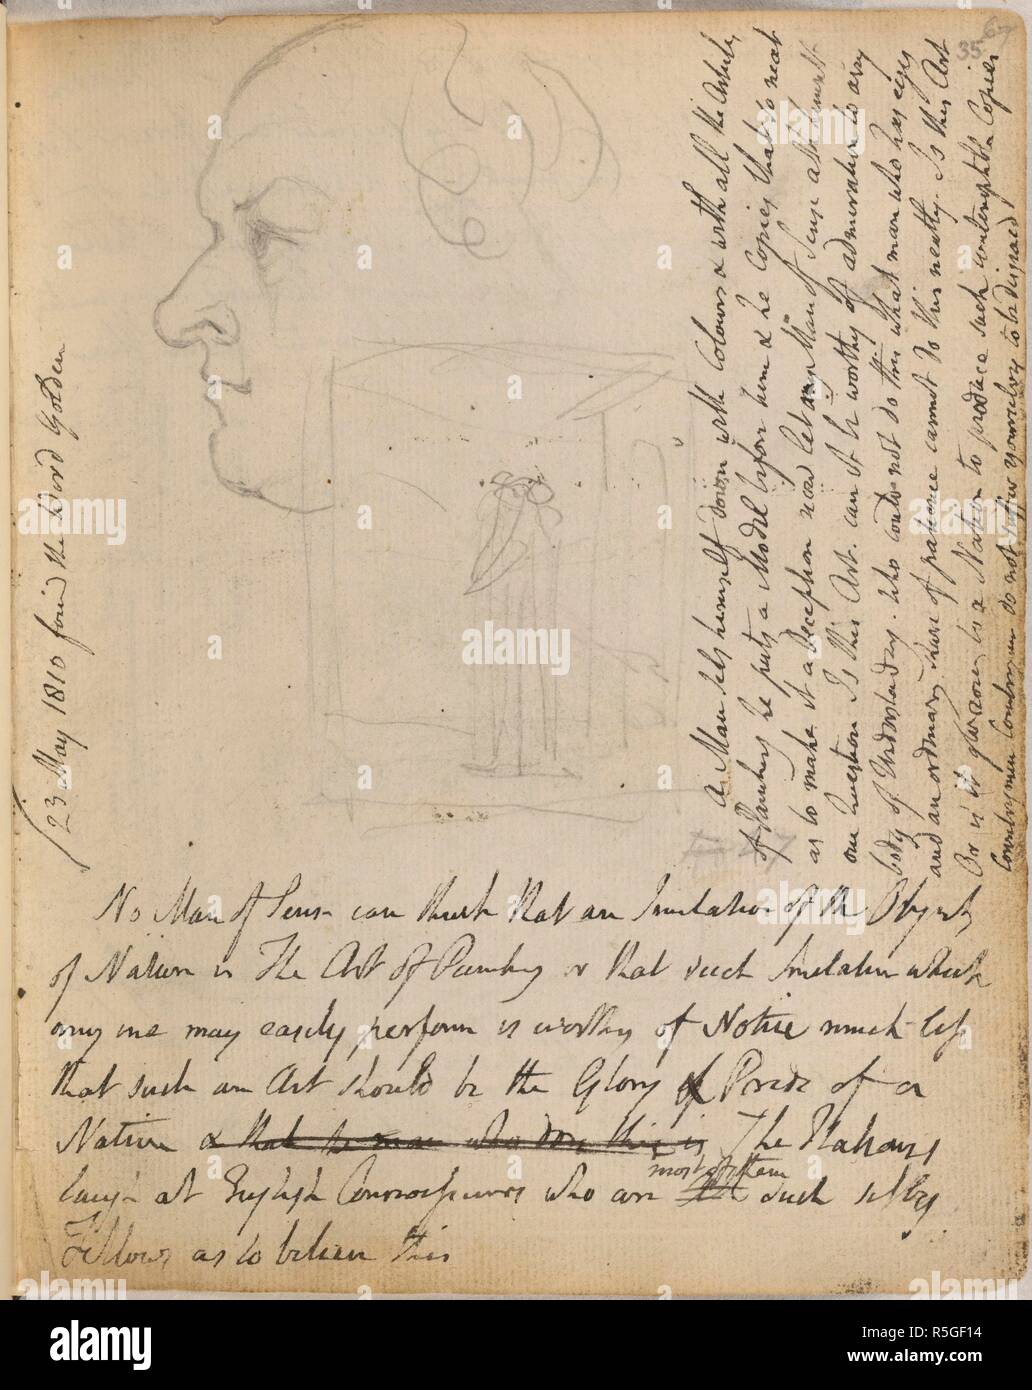 35
67
23 May 1810 found the Word Golden
A Man sets himself down with Colours & with all the Articles
of Painting he puts a Model before him & he copies that so neat
as to make it a Deception now let any Man of Sense ask himself
one Question Is this Art. can it be worthy of admiration to any
body of Understanding. Who could not do this what man who has eyes
and an ordinary share of patience cannot do this neatly. Is this Art
Or is it glorious to a Nation to produce such contemptible Copies
Countrymen Countrymen do not suffer yourselves to be disgraced
No Man of Sense can think that an Imitation of the Objects
of Nature is The Art of Painting or that such Imitation which
any one may easily perform is worthy of Notice much less
that such an Art should be the Glory & Pride of a
Nation & that the man who does this is The Italians
laugh at English Connoisseurs who are most of them such silly
Fellows as to believe this
alamy stock photo
R5GF14
www.alamy.com